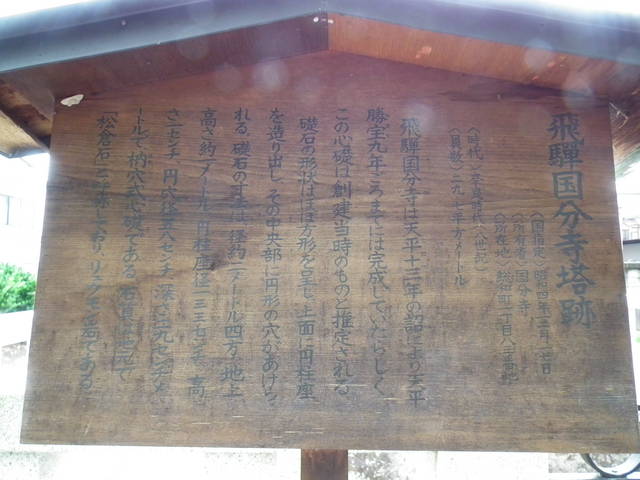 飛騨国分寺塔跡
〈国指定〉昭和四年十二月十七日
〈所有者〉国分寺
〈所在地〉総和町一丁目八三番地
〈時代〉奈良時代(八世紀)
〈員数〉二九.七平方メートル
飛騨国分寺は天平十三年の詔により天平
勝宝九年ごろまでには完成していたらしく、
この心礎は創建当時のものと推定される。
礎石の形状はほぼ方形を呈し、上面に円柱座
を造り出し、その中央部に円形の穴があけら
れる。礎石の寸法は、径約二メートル四方、地上
高さ約一メートル、円柱座径一三三センチ、高
さ一センチ、円穴径五八センチ、深さ
ートルで、枘穴式心礎である。石質は当地で
「松倉石」と呼称しており、